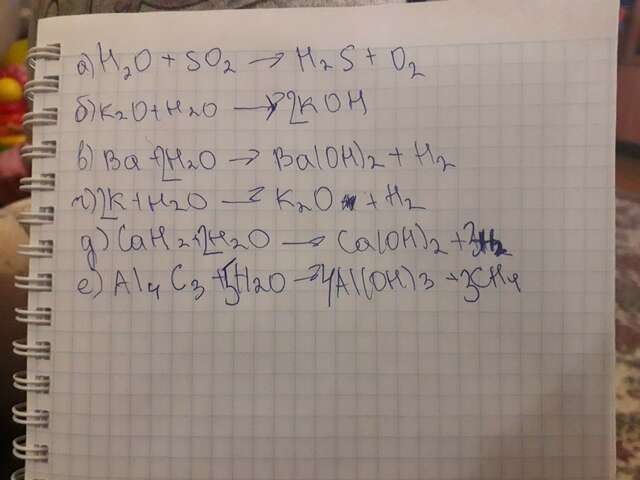 а) H₂O + SO₂ → H₂S + O₂
б) K₂O + H₂O → 2KOH
в) Ba + 2H₂O → Ba(OH)₂ + H₂
г) 2K + H₂O → K₂O + H₂
д) CaH₂ + 2H₂O → Ca(OH)₂ + 2H₂
е) Al₄C₃ + H₂O → 4Al(OH)₃ + 3CH₄